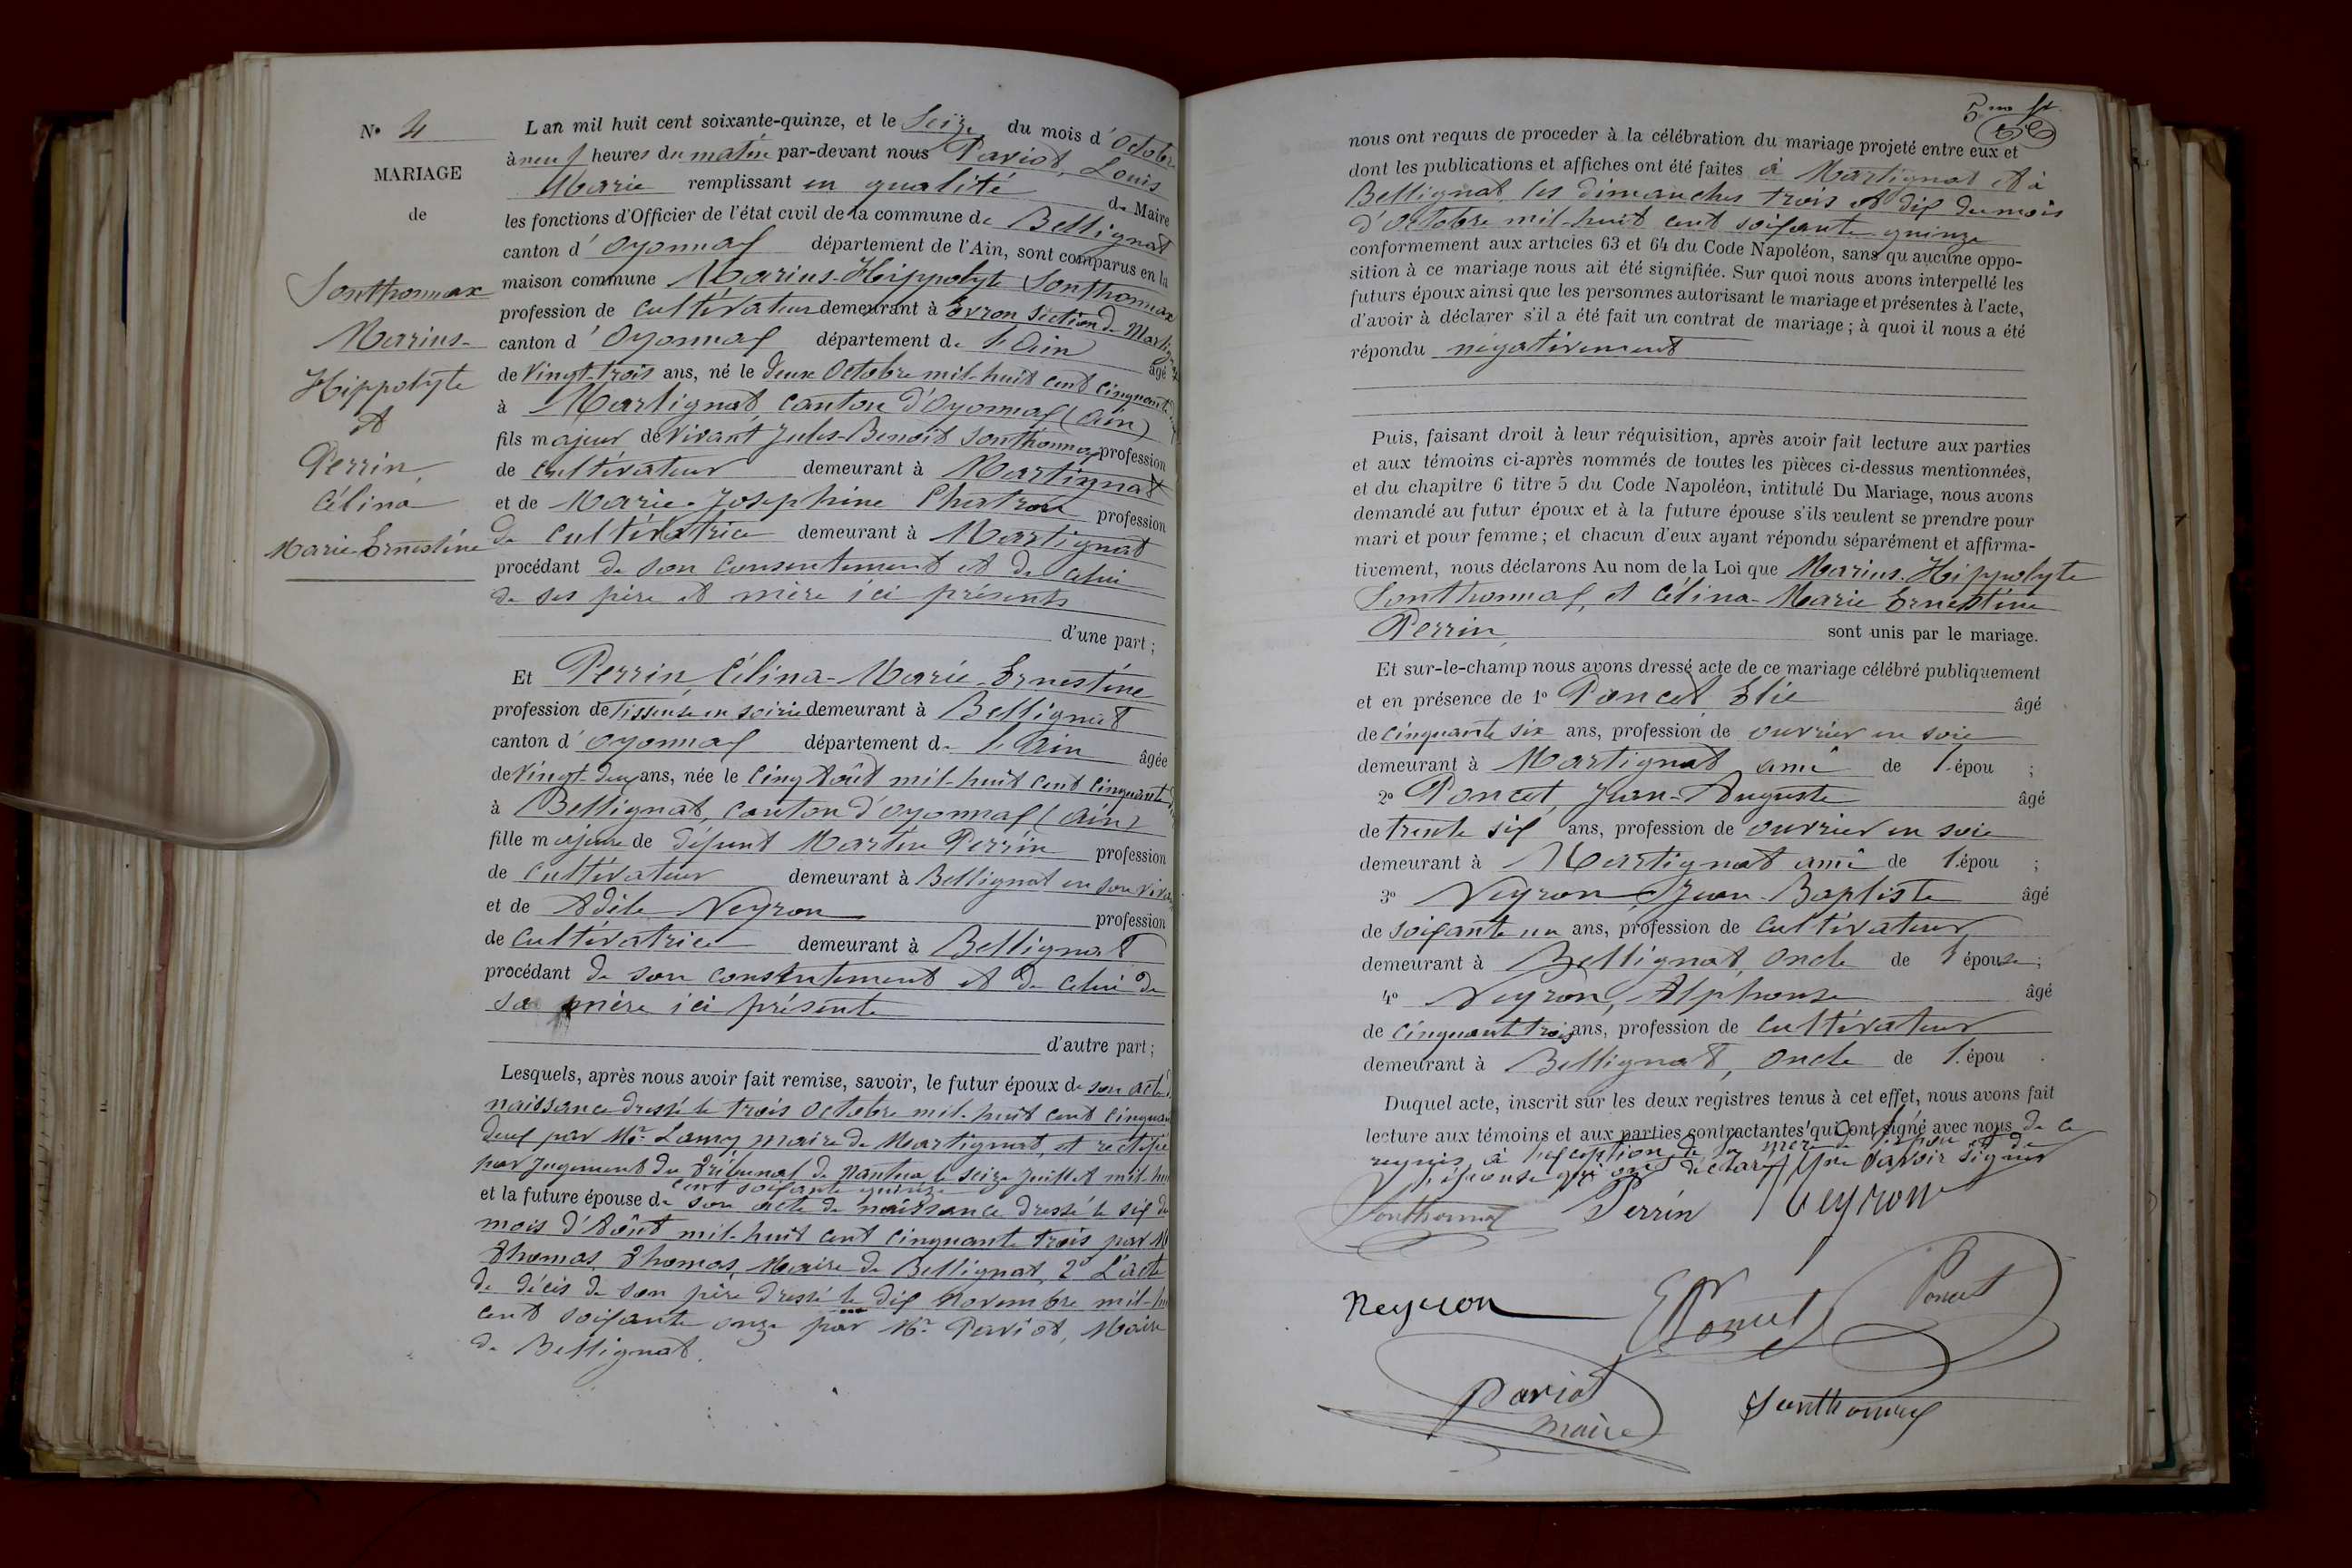 N° 4
MARIAGE
de
Sonthonnax
Marius-
Hippolyte
et
Perrin,
Célina
Marie Ernestine
L'an mil huit cent soixante-quinze, et le Seize du mois d'Octobre
à neuf heures du matin par-devant nous Paviot, Louis
Marie remplissant en qualité de Maire
les fonctions d'Officier de l'état civil de la commune de Bellignat
canton d'Oyonnax département de l'Ain, sont comparus en la
maison commune Marius-Hippolyte Sonthonnax
profession de cultivateur demeurant à Evron section de Martignat
canton d'Oyonnax département de l'Ain âgé
de Vingt-trois ans, né le deux Octobre mil-huit cent cinquante
à Martignat, canton d'Oyonnax (Ain)
fils majeur de vivant Jules-Benoit Sonthonnax profession
de cultivateur demeurant à Martignat
et de Marie-Josephine Chatron profession
de cultivatrice demeurant à Martignat
procédant de son consentement et de celui
de ses père et mère ici présents
d'une part ;
Et Perrin, Célina-Marie-Ernestine
profession de Tisseuse en soirie demeurant à Bellignat
canton d'Oyonnax département de l'Ain âgée
de Vingt-deux ans, née le cinq Août mil-huit cent cinquante
à Bellignat, canton d'Oyonnax (Ain)
fille majeure de défunt Martin Perrin profession
de cultivateur demeurant à Bellignat en son viva
et de Adèle Neyron profession
de cultivatrice demeurant à Bellignat
procédant de son consentement et de celui de
sa mère ici présente
d'autre part ;
Lesquels, après nous avoir fait remise, savoir, le futur époux de son acte
naissance dressé le trois Octobre mil-huit cent cinquan
deux par Mr Lamy maire de Martignat, et rectifié
par Jugement du Tribunal de Nantua le seize Juillet mil-hui
cent soixante quinze
et la future épouse de son acte de naissance dressé le six du
mois d'Août mil-huit cent cinquante trois par Mr
Thomas Thomas, Maire de Bellignat, 2° L'acte
de décès de son père dressé le dix Novembre mil-hu
cent soixante onze par Mr Paviot, Maire
de Bellignat.
nous ont requis de proceder à la célébration du mariage projeté entre eux et
dont les publications et affiches ont été faites à Martignat et à
Bellignat les dimanches trois et dix du mois
d'Octobre mil-huit cent soixante-quinze
conformement aux articles 63 et 64 du Code Napoléon, sans qu'aucune oppo-
sition à ce mariage nous ait été signifiée. Sur quoi nous avons interpellé les
futurs époux ainsi que les personnes autorisant le mariage et présentes à l'acte,
d'avoir à déclarer s'il a été fait un contrat de mariage ; à quoi il nous a été
répondu négativement
Puis, faisant droit à leur réquisition, après avoir fait lecture aux parties
et aux témoins ci-après nommés de toutes les pièces ci-dessus mentionnées,
et du chapitre 6 titre 5 du Code Napoléon, intitulé Du Mariage, nous avons
demandé au futur époux et à la future épouse s'ils veulent se prendre pour
mari et pour femme ; et chacun d'eux ayant répondu séparément et affirma-
tivement, nous déclarons Au nom de la Loi que Marius-Hippolyte
Sonthonnax, et Célina-Marie Ernestine
Perrin sont unis par le mariage.
Et sur-le-champ nous avons dressé acte de ce mariage célébré publiquement
et en présence de 1° Poncet Elie âgé
de cinquante six ans, profession de ouvrier en soie
demeurant à Martignat ami de l'épou ;
2° Poncet, Jean-Auguste âgé
de trente six ans, profession de ouvrier en soie
demeurant à Martignat ami de l'épou ;
3° Neyron, Jean-Baptiste âgé
de soixante un ans, profession de cultivateur
demeurant à Bellignat, oncle de l'épouse ;
4° Neyron, Alphonse âgé
de cinquante trois ans, profession de cultivateur
demeurant à Bellignat, oncle de l'épou .
Duquel acte, inscrit sur les deux registres tenus à cet effet, nous avons fait
lecture aux témoins et aux parties contractantes qui ont signé avec nous de ce
requis, à l'exception de la mère de l'époux et de
l'épouse qui ont déclaré ne savoir signer
Sonthonnax Perrin Neyron
Neyron E Poncet Poncet
Paviot
maire
Sonthonnax